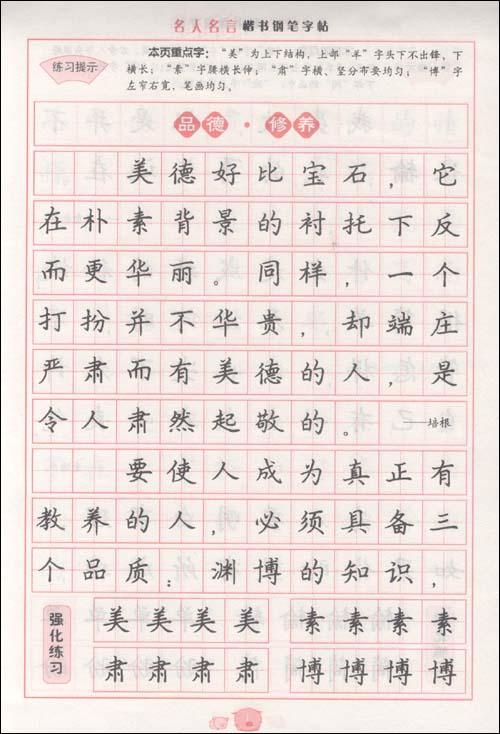 名人名言楷书钢笔字帖
练习提示
本页重点字：“美”为上下结构，上部“羊”字头下不出锋，下
横长；“素”字腰横长伸；“肃”字横、竖分布要均匀；“博”字
左窄右宽，笔画均匀。
品德·修养
美德好比宝石，它
在朴素背景的衬托下反
而更华丽。同样，一个
打扮并不华贵，却端庄
严肃而有美德的人，是
令人肃然起敬的。——培根
要使人成为真正有
教养的人，必须具备三
个品质：渊博的知识，
强化练习
美美美美 素素素素
肃肃肃肃 博博博博